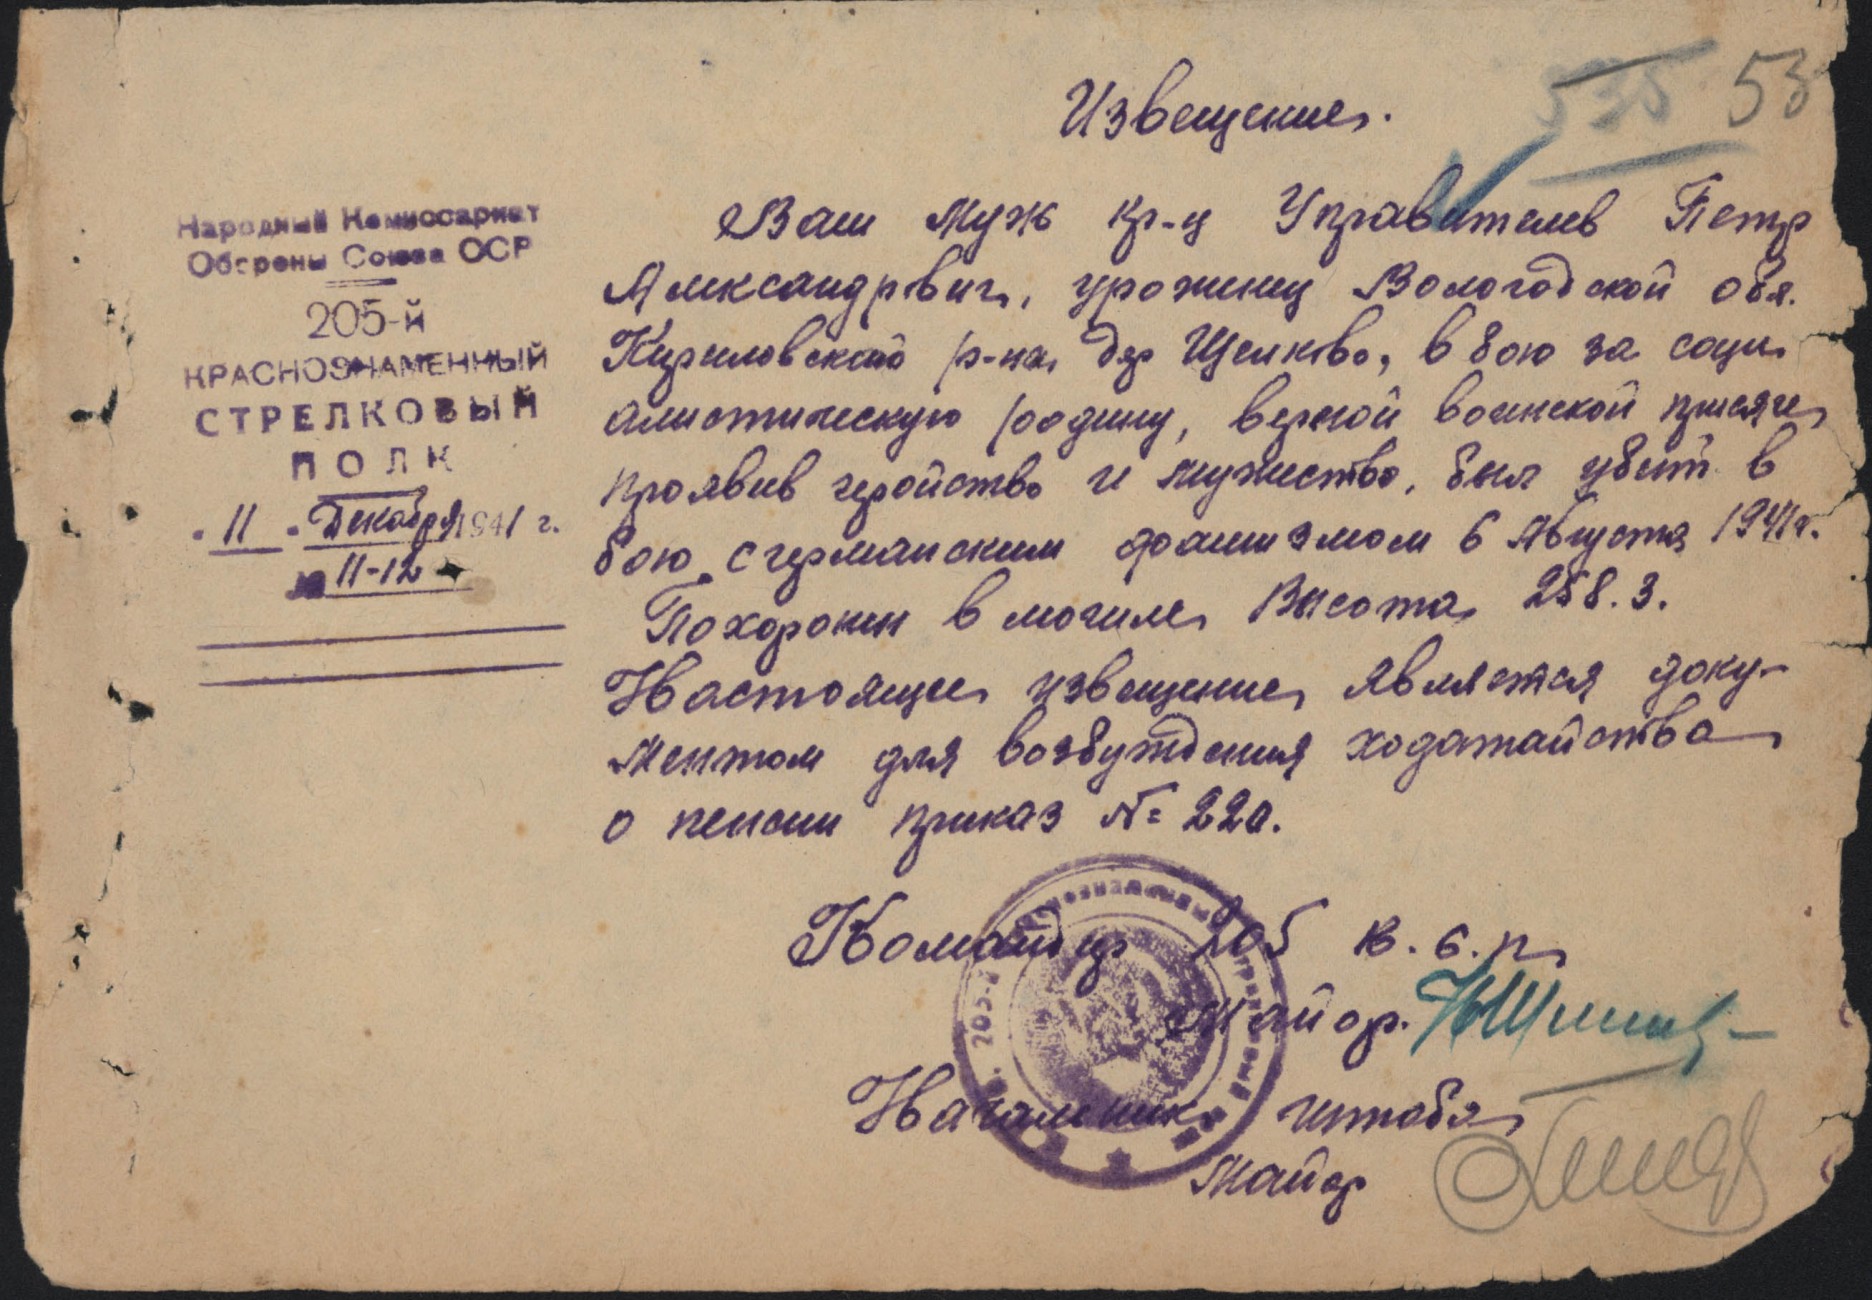 535 53
Извещение.
Народный Комиссариат
Обороны Союза ССР
205-й
КРАСНОЗНАМЕННЫЙ
СТРЕЛКОВЫЙ
ПОЛК
"11" Декабря 1941 г.
№ 11-12
Ваш муж кр-ц Управителев Петр
Александрович, уроженец Вологодской обл.
Кириловского р-на, дер Щелково, в бою за соци
алистическую родину, верной воинской присяге,
проявив геройство и мужество, был убит в
бою с германским фашизмом 6 Августа 1941 г.
Похоронен в могиле Высота 258.3.
Настоящее извещение является доку-
ментом для возбуждения ходатайства
о пенсии приказ № 220.
Командир 205 к.с.п
Майор.
Начальник штаба
Майор
205-й